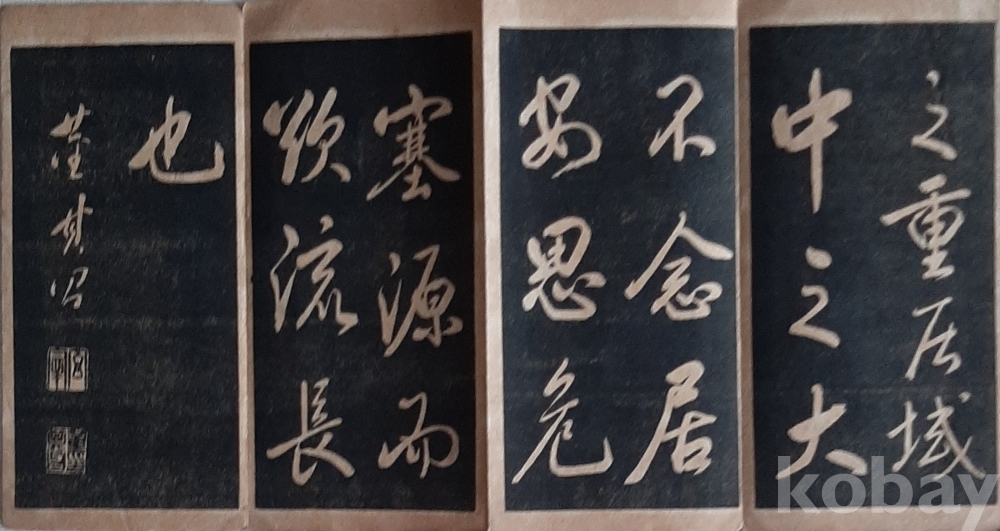 之重居域
中之大
不念居
安思危
塞源而
欲流長
也
董其昌
kobay